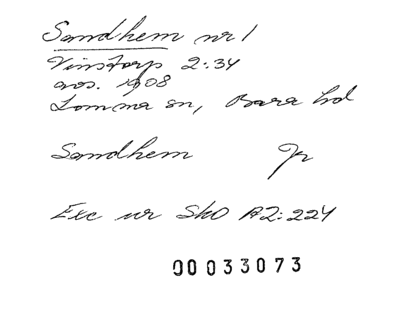 Sandhem nr 1
Vinstorp 2:34
avs. 1908
Lomma sn, Bara hd
Sandhem Jr
Exc ur SkO A2:224
00033073